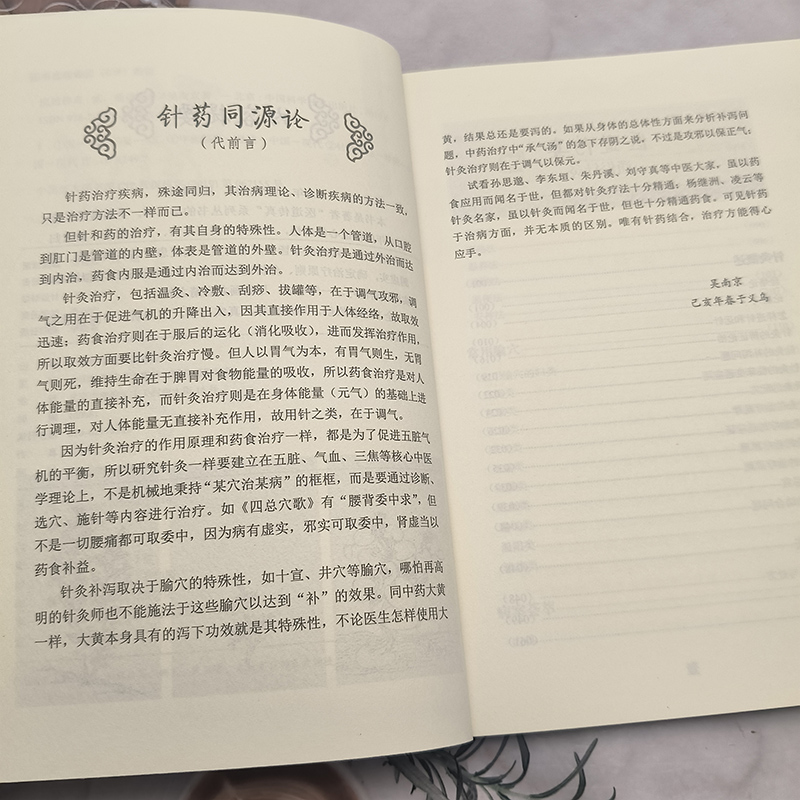 针药同源论
（代前言）
针药治疗疾病，殊途同归，其治病理论、诊断疾病的方法一致，
只是治疗方法不一样而已。
但针和药的治疗，有其自身的特殊性。人体是一个管道，从口腔
到肛门是管道的内壁，体表是管道的外壁。针灸治疗是通过外治而达
到内治，药食内服是通过内治而达到外治。
针灸治疗，包括温灸、冷敷、刮痧、拔罐等，在于调气攻邪，调
气之用在于促进气机的升降出入，因其直接作用于人体经络，故取效
迅速；药食治疗则在于服后的运化（消化吸收），进而发挥治疗作用，
所以取效方面要比针灸治疗慢。但人以胃气为本，有胃气则生，无胃
气则死，维持生命在于脾胃对食物能量的吸收，所以药食治疗是对人
体能量的直接补充，而针灸治疗则是在身体能量（元气）的基础上进
行调理，对人体能量无直接补充作用，故用针之类，在于调气。
因为针灸治疗的作用原理和药食治疗一样，都是为了促进五脏气
机的平衡，所以研究针灸一样要建立在五脏、气血、三焦等核心中医
学理论上，不是机械地秉持“某穴治某病”的框框，而是要通过诊断、
选穴、施针等内容进行治疗。如《四总穴歌》有“腰背委中求”，但
不是一切腰痛都可取委中，因为病有虚实，邪实可取委中，肾虚当以
药食补益。
针灸补泻取决于腧穴的特殊性，如十宣、井穴等腧穴，哪怕再高
明的针灸师也不能施法于这些腧穴以达到“补”的效果。同中药大黄
一样，大黄本身具有的泻下功效就是其特殊性，不论医生怎样使用大
黄，结果总还是要泻的。如果从身体的总体性方面来分析补泻问
题，中药治疗中“承气汤”的急下存阴之说，不过是攻邪以保正气；
针灸治疗则在于调气以保元。
试看孙思邈、李东垣、朱丹溪、刘守真等中医大家，虽以药
食应用而闻名于世，但都对针灸疗法十分精通；杨继洲、凌云等
针灸名家，虽以针灸而闻名于世，但也十分精通药食。可见针药
于治病方面，并无本质的区别。唯有针药结合，治疗方能得心
应手。
吴南京
己亥年春于义乌